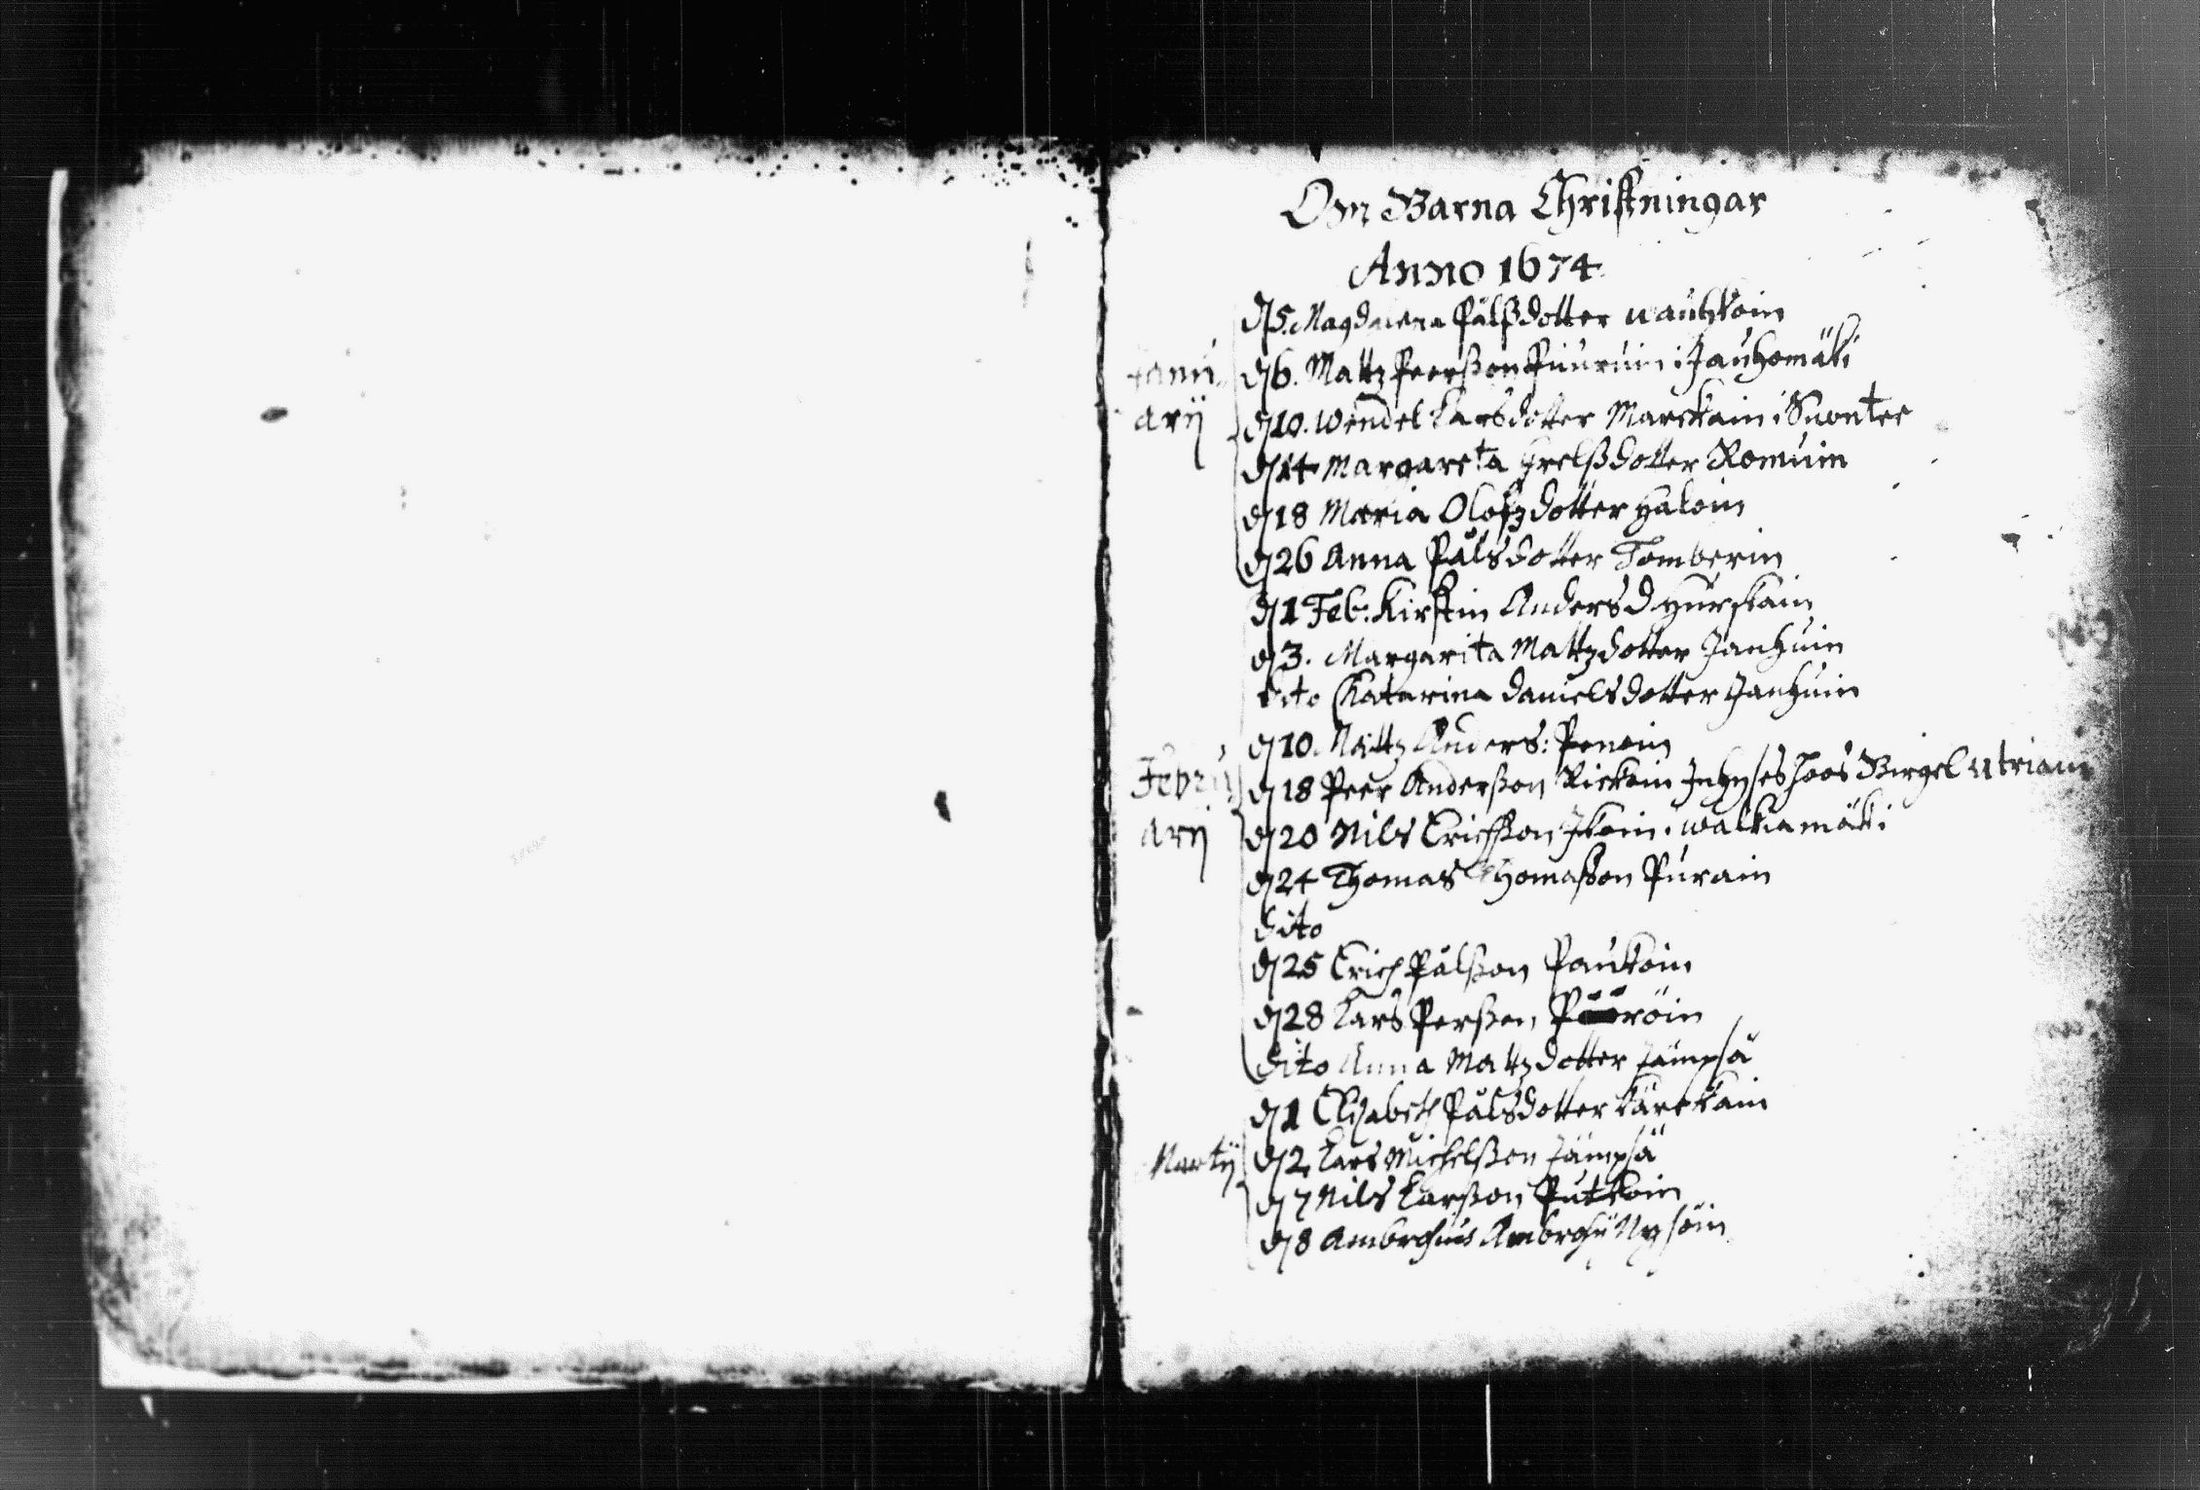 Om Barna Christningar
Anno 1674
Janu-
arij
d 5. Magdalena Pålßdotter Wauhkoin
d 6. Mattz Peerßon Puuruin i Jauhomäki
d 10. Wendel Larsdotter Marckain i Suontee
d 14 Margareta Grelßdotter Romuin
d 18 Maria Olofzdotter Haloin
d 26 Anna Pålsdotter Tomberin
Febru
arij
d 1 Feb: Kirstin Anders D Hurskain
d 3. Margarita Mattzdotter Janhuin
dito Katarina danielsdotter Janhuin
d 10. Mattz Anders: Penoin
d 18 Peer Anderßon Rickoin hoos Birgel
d 20 Nils Erichßon Ikoin. walkiamäki
d 24 Thomas Thomaßon Purain
dito
d 25 Erich Pålßon Paukoin
d 28 Lars Perßon
dito Anna Mattzdotter Jämpsä
Martij
d 1 Elisabeth Pålsdotter Kärckäin
d 2 Lars Michelßon Jämpsä
d 7 Nils Larßon Putkoin
d 8 Ambrosius Ambrosij